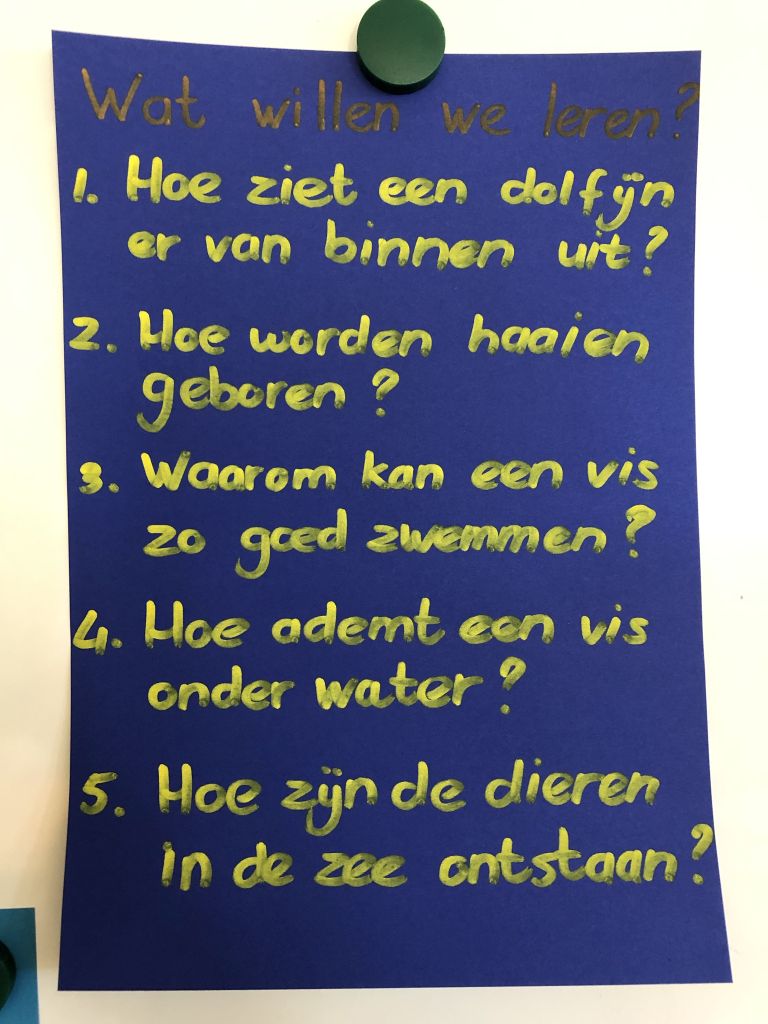 Wat willen we leren?
1. Hoe ziet een dolfijn
er van binnen uit?
2. Hoe worden haaien
geboren?
3. Waarom kan een vis
zo goed zwemmen?
4. Hoe ademt een vis
onder water?
5. Hoe zijn de dieren
in de zee ontstaan?